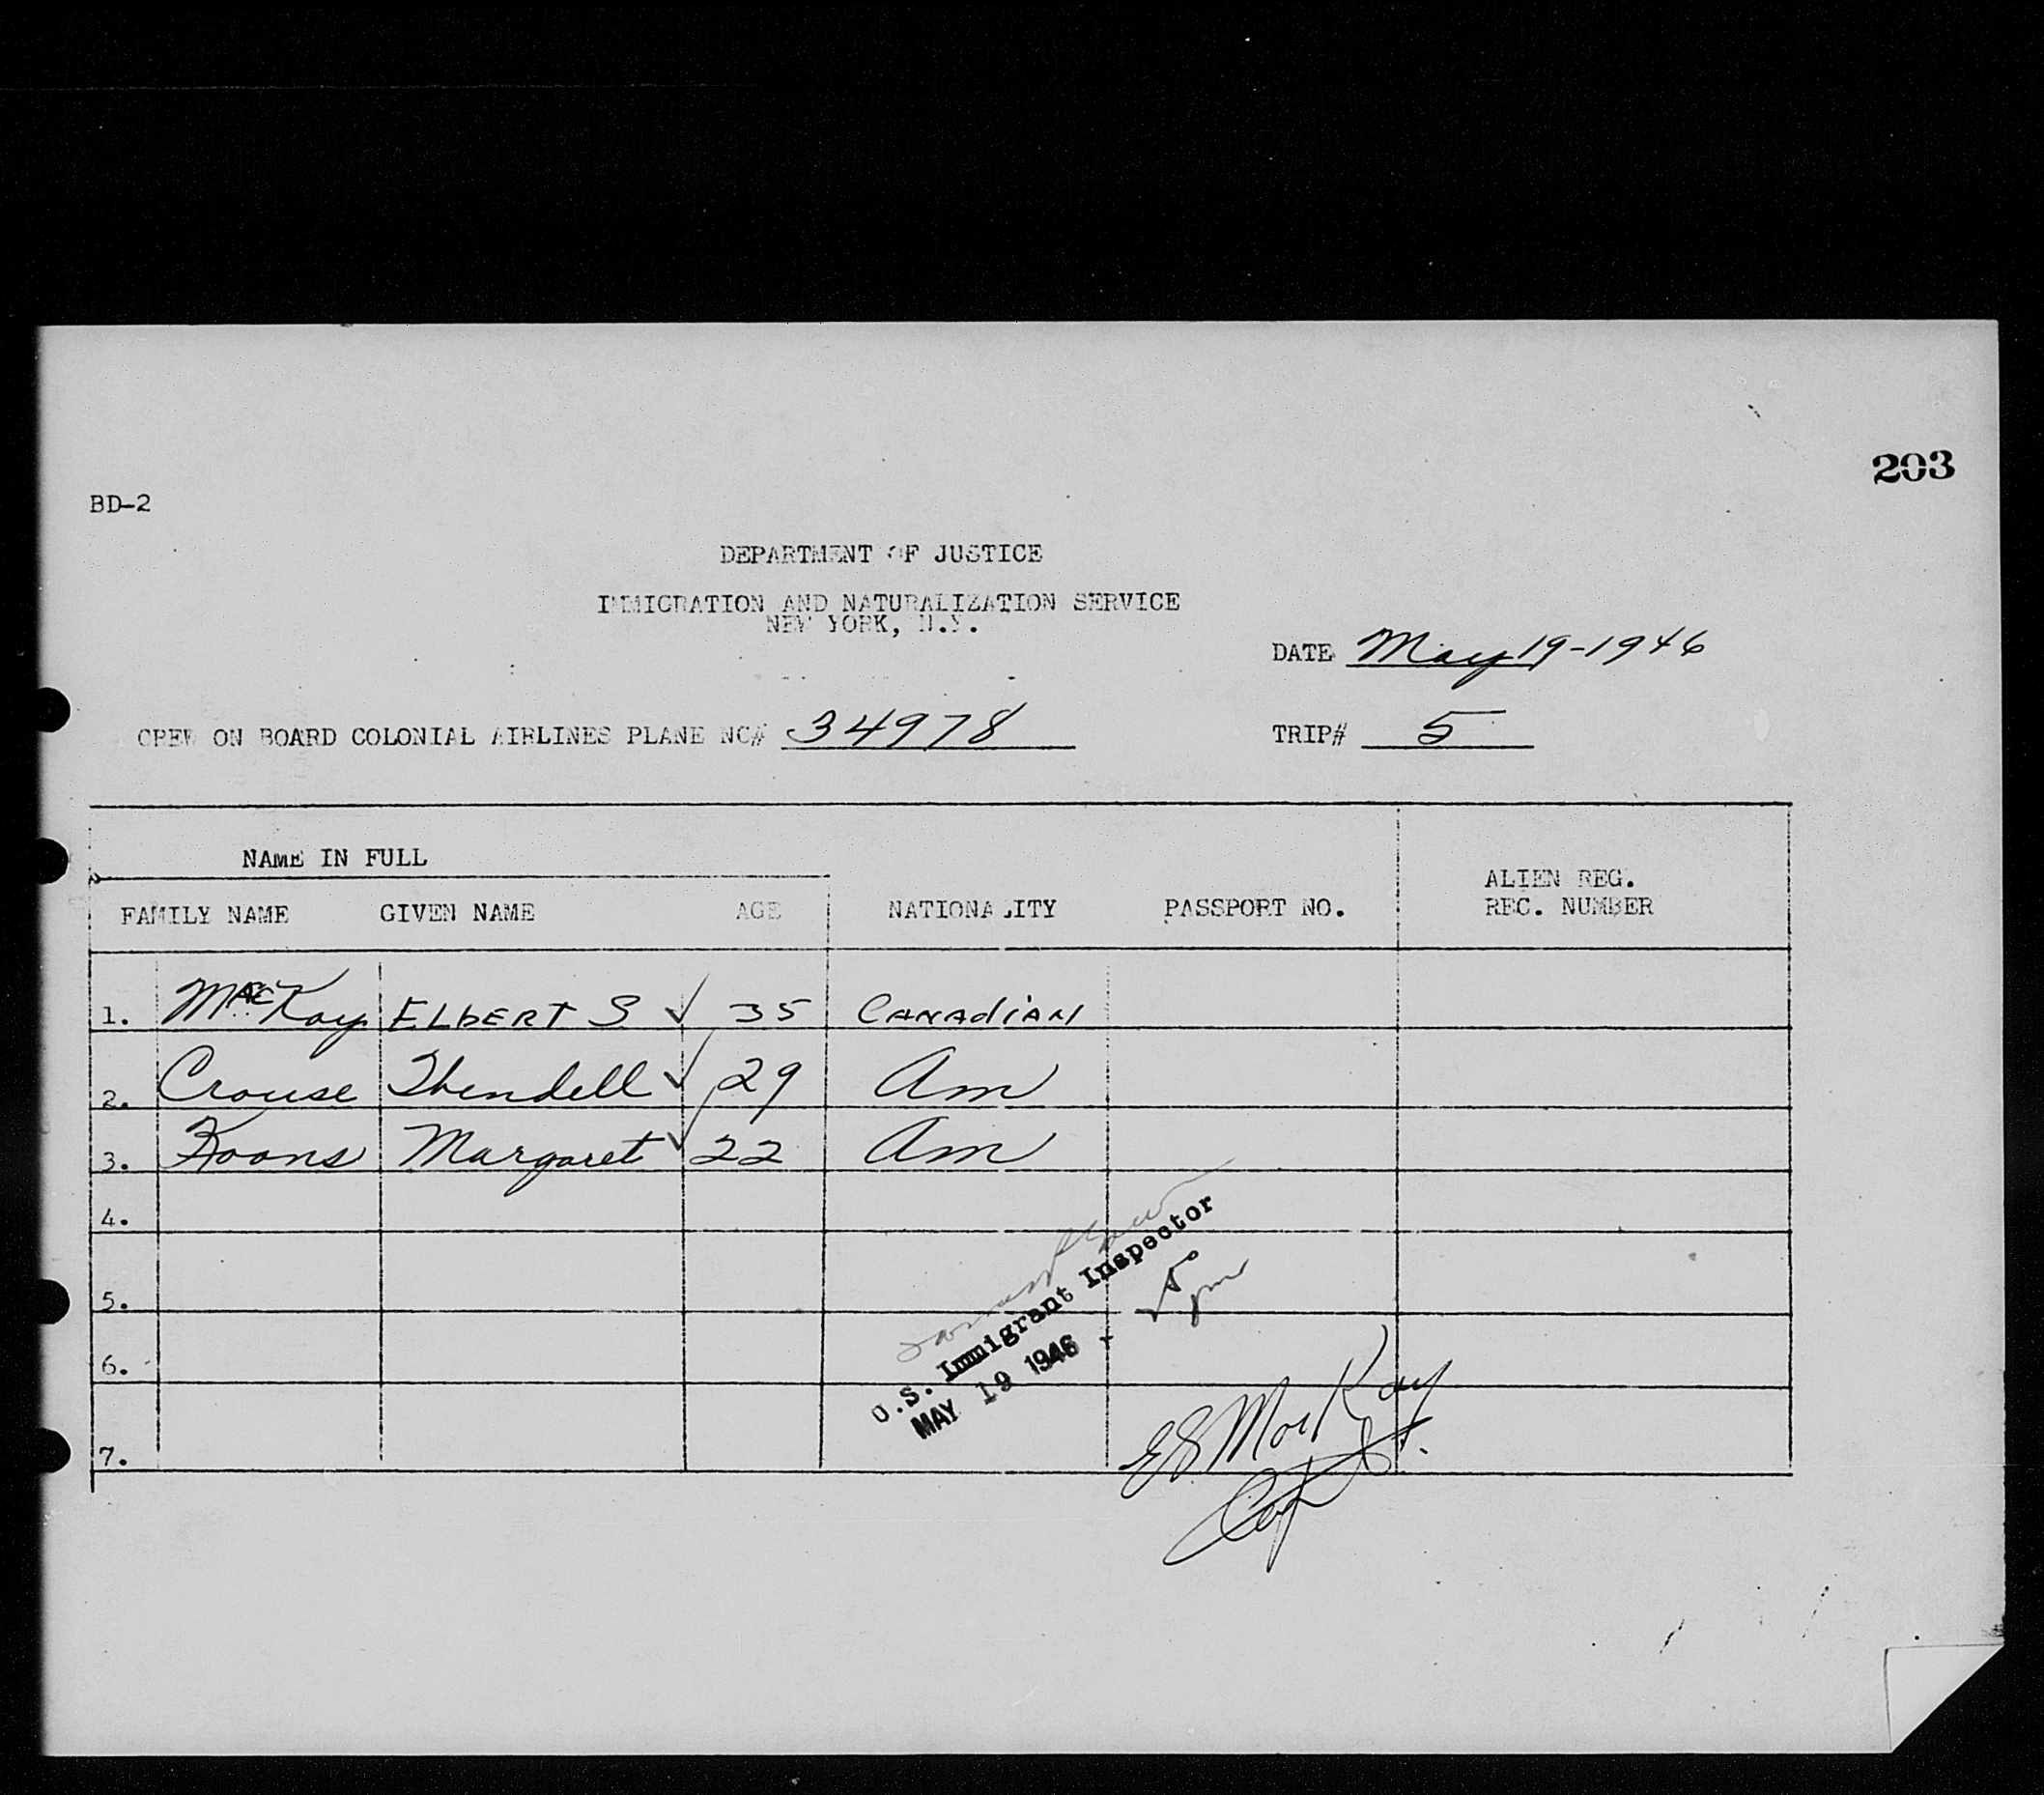 203
BD-2
DEPARTMENT OF JUSTICE
IMMIGRATION AND NATURALIZATION SERVICE
NEW YORK, N.Y.
DATE May 19-1946
CREW ON BOARD COLONIAL AIRLINES PLANE NC# 34978 TRIP# 5
NAME IN FULL
FAMILY NAME GIVEN NAME AGE NATIONALITY PASSPORT NO. ALIEN REG. REC. NUMBER
1. MacKay ELbERT S ✓ 35 CANAdiAN
2. Crouse ✓ 29 Am
3. Koons Margaret ✓ 22 Am
4.
5.
6.
7.
U.S. Immigrant Inspector
MAY 19 1946 - 5 pm
ES MacKay
Capt.